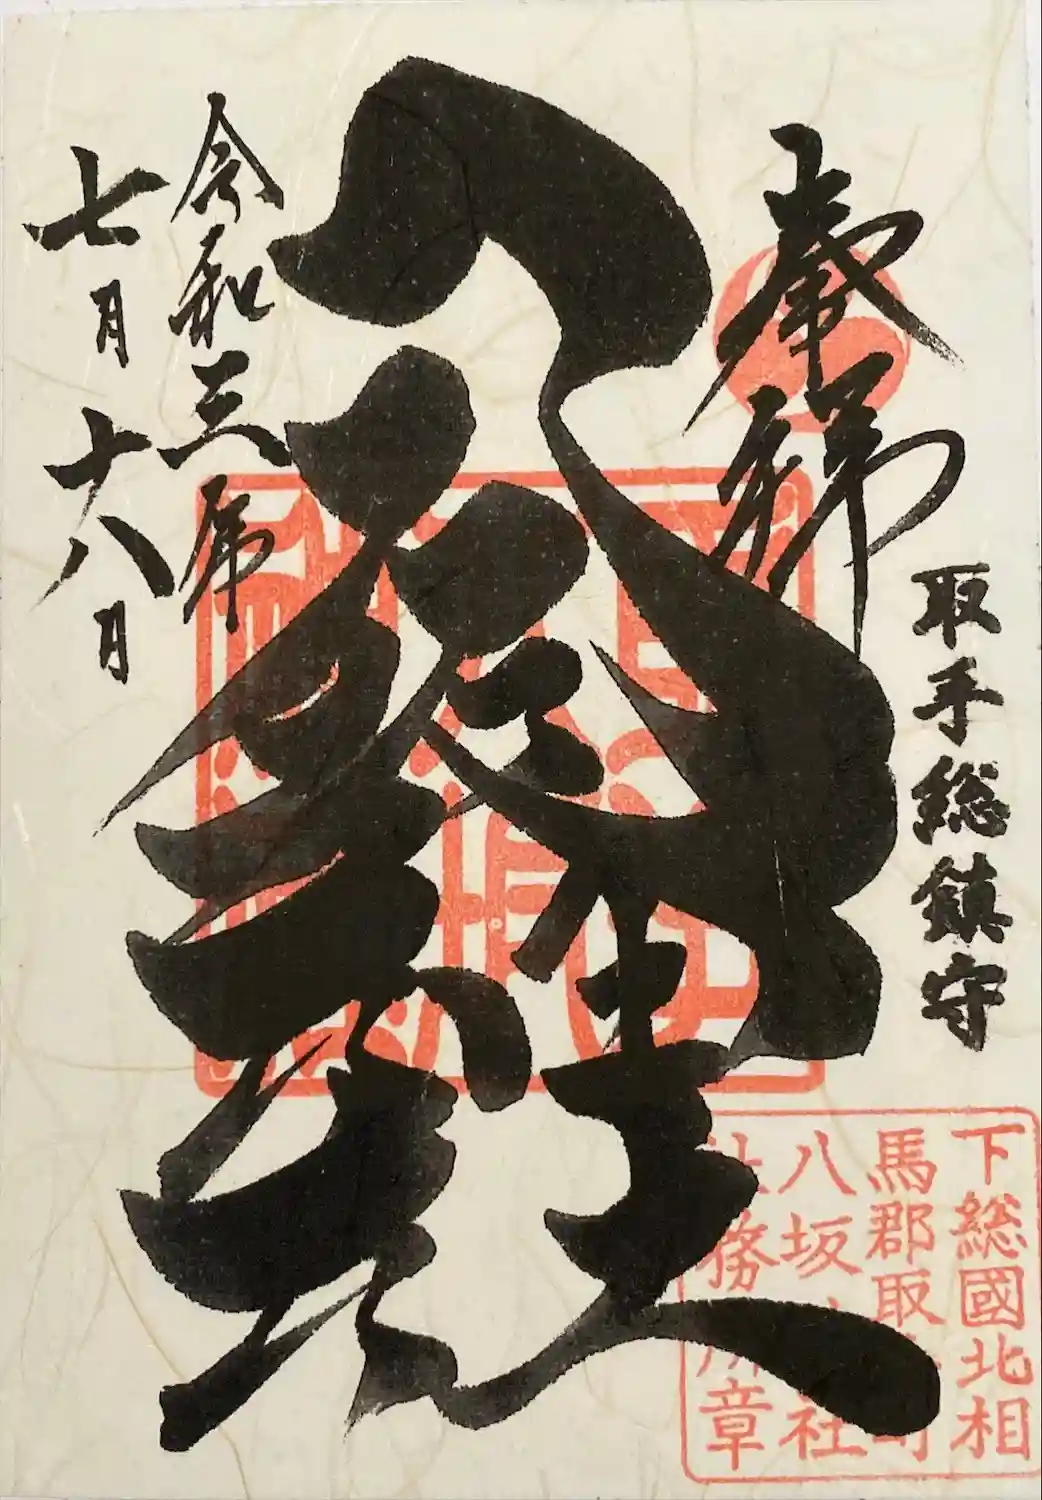 奉拝
取手総鎮守
八坂神社
令和三年
七月十八日
下総國北相
馬郡取
八坂 社
務 章